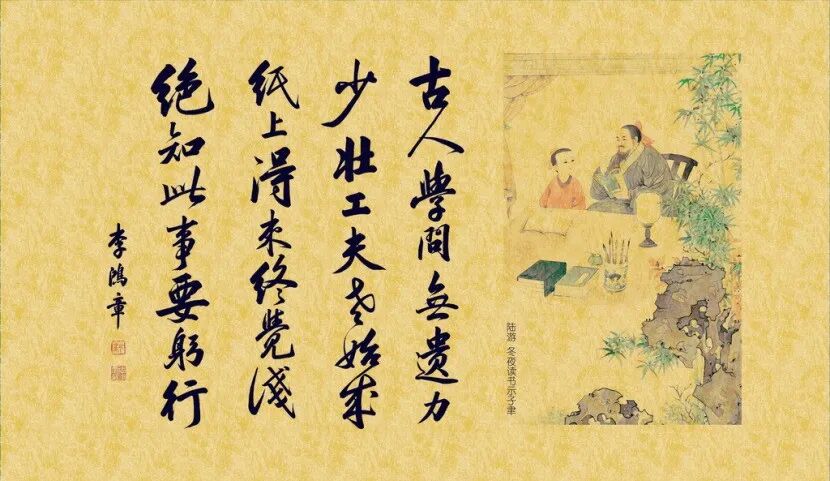 古人學問無遺力
少壯工夫老始成
纸上得来终覺淺
绝知此事要躬行
李鴻章
陆游 冬夜读书示子聿